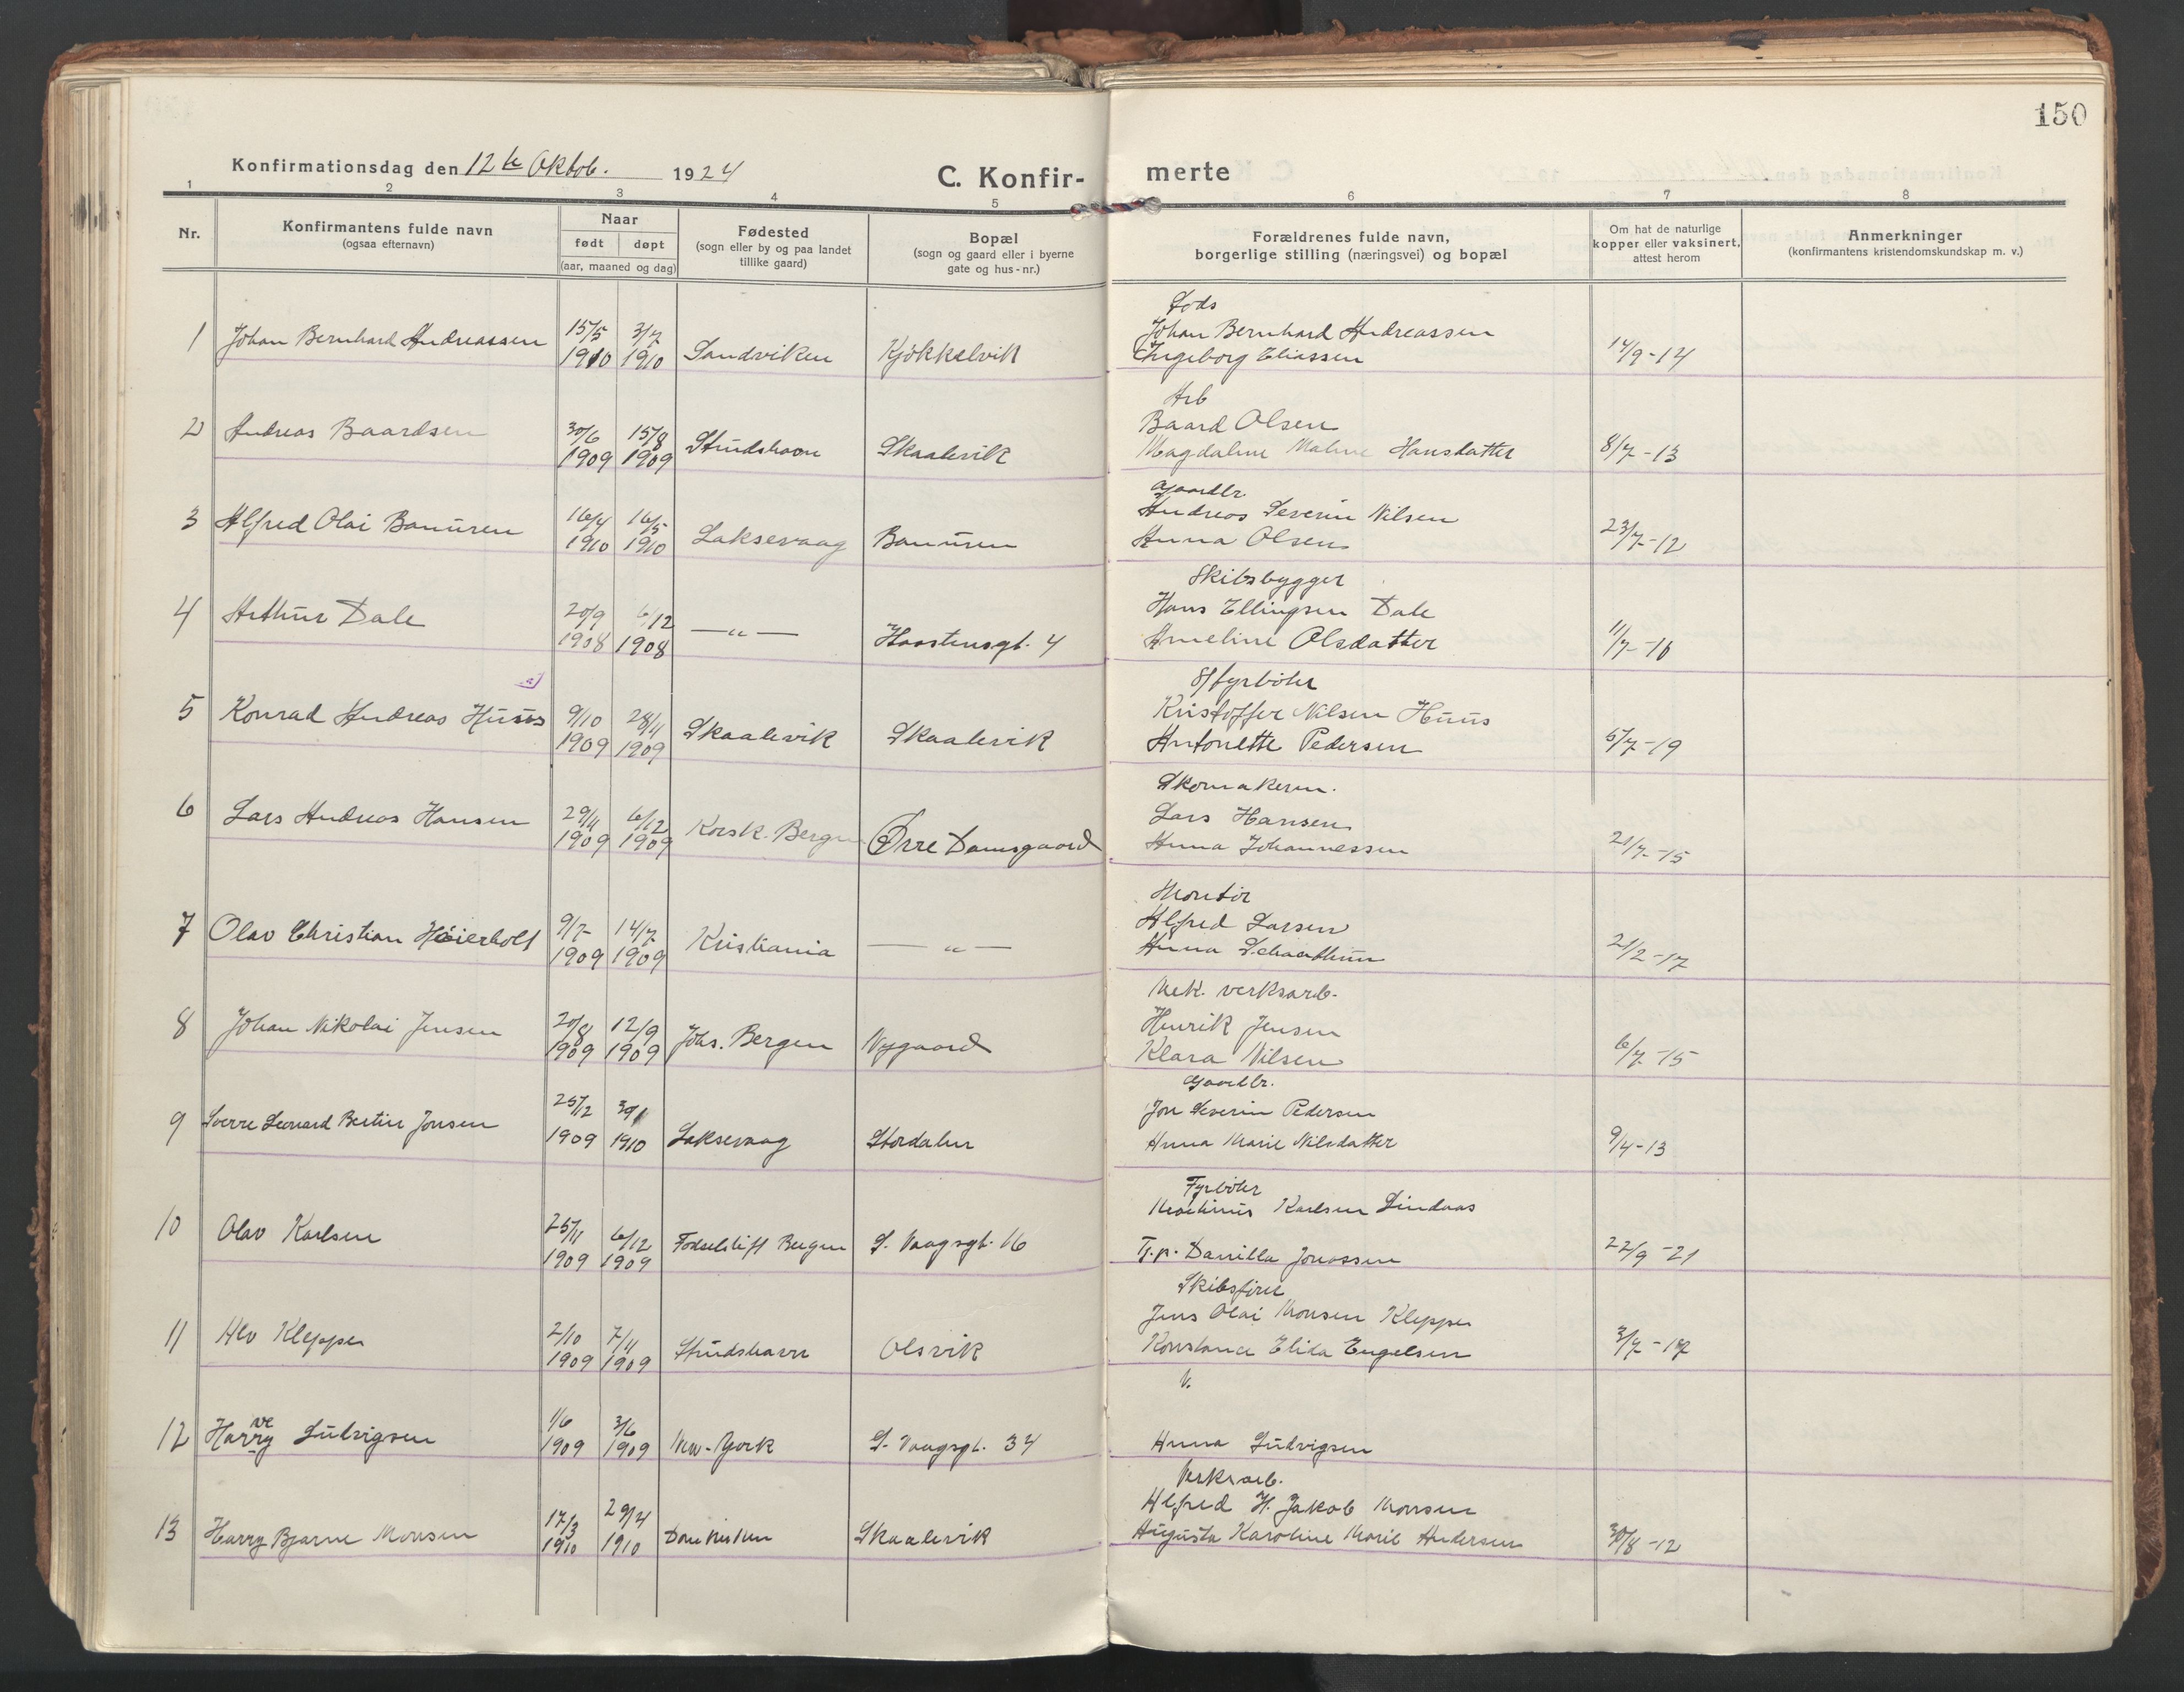 150
Konfirmationsdag den 12te Oktob. 1924
C. Konfir- merte
1 2 3 4 5 6 7 8
Nr.
Konfirmantens fulde navn
(ogsaa efternavn)
Naar
født døpt
(aar, maaned og dag)
Fødested
(sogn eller by og paa landet
tillike gaard)
Bopæl
(sogn og gaard eller i byerne
gate og hus-nr.)
Forældrenes fulde navn,
borgerlige stilling (næringsvei) og bopæl
Om hat de naturlige
kopper eller vaksinert,
attest herom
Anmerkninger
(konfirmantens kristendomskundskap m. v.)
Lods
1 Johan Bernhard Andreassen 15/5 1910 3/7 1910 Sandviken Kjøkkelvik Johan Bernhard Andreassen
Ingeborg Eliassen 14/9-14
Arb
2 Andreas Baardsen 30/6 1909 15/8 1909 Strudshavn Skaalevik Baard Olsen
Magdaline Maline Hansdatter 8/7-13
Gaardbr.
3 Alfred Olai Banuren 16/4 1910 16/5 1910 Laksevaag Banuren Andreas Severin Nilsen
Anna Olsen 23/7-12
Skibsbygger
4 Arthur Dale 20/9 1908 6/12 1908 — " — Haastensgt. 4 Hans Ellingsen Dale
Ameline Olsdatter 11/7-16
S/fyrbøter
5 Konrad Andreas Huus 9/10 1909 28/11 1909 Skaalevik Skaalevik Kristoffer Nilsen Huus
Antonette Pedersen 5/7-19
Skomakerm.
6 Lars Andreas Hansen 29/11 1909 6/12 1909 Korsk. Bergen Øvre Damsgaard Lars Hansen
Anna Johannessen 21/7-15
Montør
7 Olav Christian Heierholt 9/7 1909 14/7 1909 Kristiania — " — Alfred Larsen
Anna 21/2-17
Mek. verksarb.
8 Johan Nikolai Jensen 20/8 1909 12/9 1909 Johs. Bergen Nygaard Henrik Jensen
Klara Nilsen 6/7-15
Gaardbr.
9 Sverre Leonard Bertin Jonsen 25/12 1909 30/1 1910 Laksevaag Stordalen Jon Severin Pedersen
Anna Marie Nilsdatter 9/4-13
Fyrbøter
10 Olav Karlsen 25/11 1909 6/12 1909 Fødselstift Bergen L. Vaagsgt. 16 Martinius Karlsen Lindaas
T.p. Danilla Jonassen 22/9-21
Skibsfører
11 Alv Klepper 2/10 1909 7/11 1909 Strudshavn Olsvik Jens Olai Monsen Klepper
Konstance Elida Engelsen 3/7-
V.
12 Harry ve Ludvigsen 1/6 1909 3/6 1909 New-York L. Vaagsgt. 34
Anna Ludvigsen
Verksarb.
13 Harry Bjarne Monsen 17/3 1910 29/4 1910 Domkirken Skaalevik Alfred H. Jakob Monsen
Augusta Karoline Marie Andersen 30/8-12